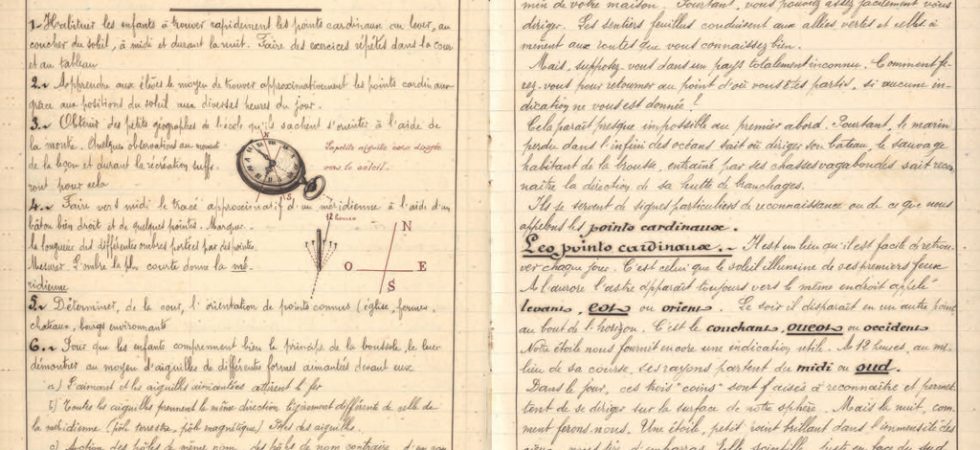 1.- Habituer les enfants à trouver rapidement les points cardinaux au lever, au
coucher du soleil, à midi et durant la nuit. Faire des exercices répétés dans la cour
et au tableau
2.- Apprendre aux élèves le moyen de trouver approximativement les points cardinaux
grâce aux positions du soleil aux diverses heures du jour.
3.- Obtenir des petits géographes de l'école qu'ils sachent s'orienter à l'aide de
la montre. Quelques observations au moment
de la leçon et durant la récréation suffi-
ront pour cela
N
La petite aiguille sera dirigée
vers le soleil.
S
4.- Faire vers midi le tracé approximatif d'un méridienne à l'aide d'un
bâton bien droit et de quelques pointes. Marquer
les longueurs des différentes ombres portées par des pointes.
Mesurer. L'ombre la plus courte donne la mé-
ridienne
12 heures
N
O E
S
5.- Déterminer, de la cour, l'orientation de points connus (église, fermes,
chateaux, bourgs environnants
6.- Pour que les enfants comprennent bien le principe de la boussole, le leur
démontrer au moyen d'aiguilles de différentes formes aimantées devant eux
a) L'aimant et les aiguilles aimantées attirent le fer
b) Toutes les aiguilles prennent la même direction légèrement différente de celle de
la méridienne (pôle terrestre, pôle magnétique) Pôles des aiguilles.
c) Action des pôles de même nom, des pôles de nom contraire d'un
min de votre maison. Pourtant, vous pouvez assez facilement vous
diriger. Les sentiers feuillus conduisent aux allées vertes et celles-ci
mènent aux routes que vous connaissez bien.
Mais, supposez-vous dans un pays totalement inconnu. Comment fe-
rez-vous pour retourner au point d'où vous êtes partis, si aucune in-
dication ne vous est donnée?
Cela paraît presque impossible au premier abord. Pourtant, le marin
perdu dans l'infini des océans sait où diriger son bateau, le sauvage
habitant de la brousse, entraîné par ses chasses vagabondes sait recon-
naître la direction de sa hutte de branchages.
Ils se servent de signes particuliers de reconnaissance ou de ce que nous
appelons les points cardinaux.
Les points cardinaux.- Il est un lieu qu'il est facile de retrou-
ver chaque jour. C'est celui que le soleil illumine de ses premiers feux
A l'aurore l'astre apparaît toujours vers le même endroit appelé
levant, est ou orient. Le soir il disparaît en un autre point
au bout de l'horizon. C'est le couchant, ouest ou occident
Notre étoile nous fournit encore une indication utile. A 12 heures, au mi-
lieu de sa course, ses rayons partent du midi ou sud.
Dans le jour, ces trois "coins" sont faciles à reconnaître et permet-
tent de se diriger sur la surface de notre sphère. Mais la nuit, com-
ment ferons-nous. Une étoile, petit point brillant dans l'immensité des
cieux, nous tire d'embarras. Elle scintille juste en face du sud